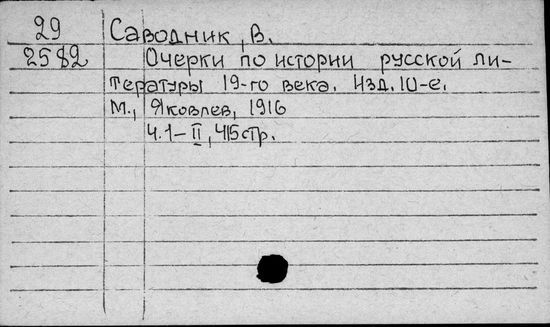 29 Саводник, В.
2582 Очерки по истории русской ли-
тературы 19-го века. Изд. 10-е.
М., Яковлев, 1916
Ч. 1-II, 415 стр.